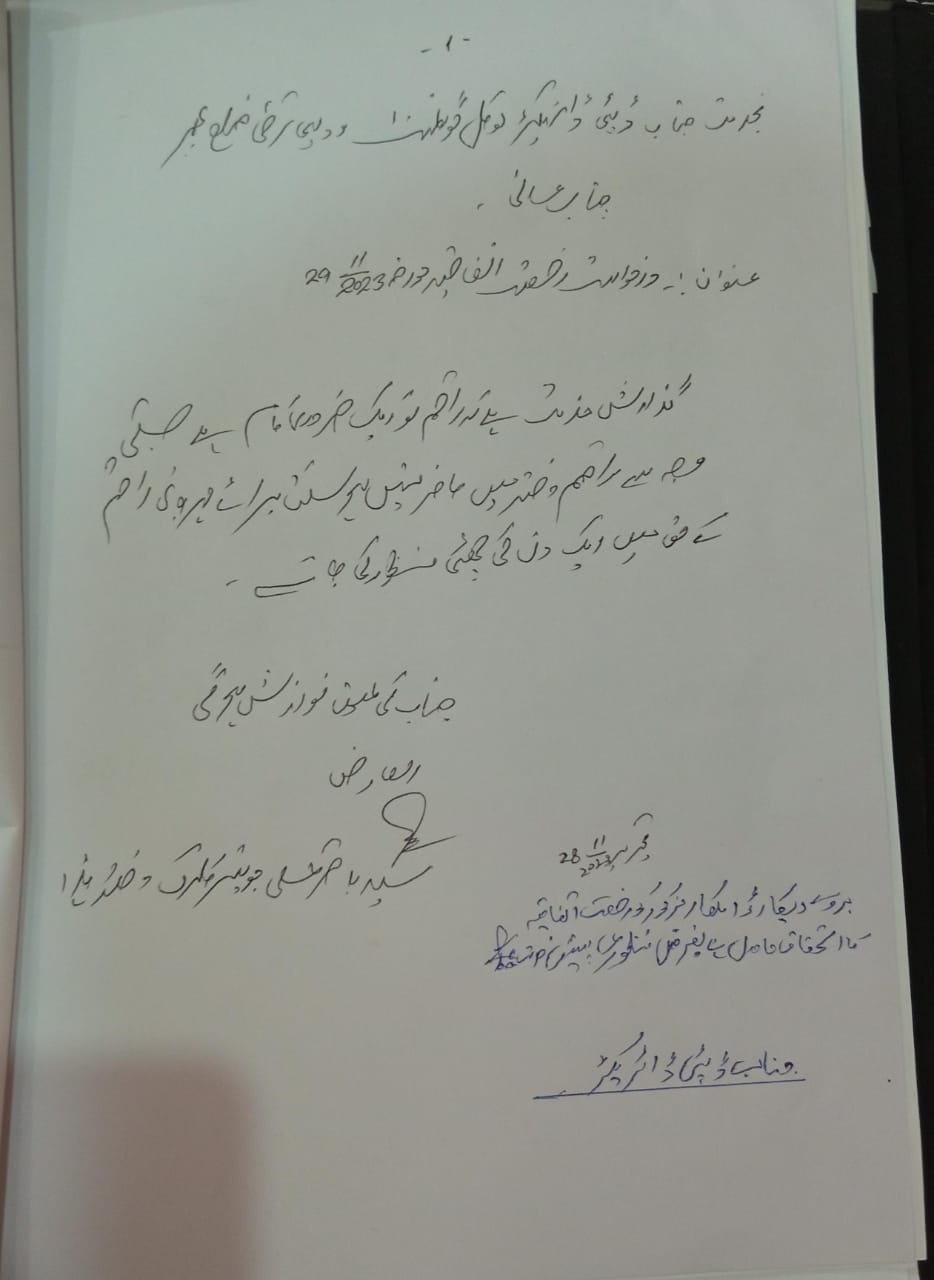 -۱-
بخدمت جناب ڈپٹی ڈائریکٹر لوکل گورنمنٹ و دیہی ترقی ضلع بھمبر
جناب عالی۔
عنوان :۔ درخواست رخصت اتفاقیہ مورخہ 29 11 2023
گذارش خدمت ہے کہ راقم کو ایک ضروری کام ہے جسکی
وجہ سے راقم دفتر میں حاضر نہیں ہو سکتا برائے مہربانی راقم
کے حق میں ایک دن کی چھٹی منظور کی جائے۔
جناب کی عین نوازش ہو گی
العارض
سید باقر علی جونیئر کلرک دفتر ہذا
تحریر 28 11 2023
بروئے ریکارڈ اہلکار مذکور کو رخصت اتفاقیہ
کا استحقاق حاصل ہے بغرض منظوری پیش خدمت ہے
جناب ڈپٹی ڈائریکٹر